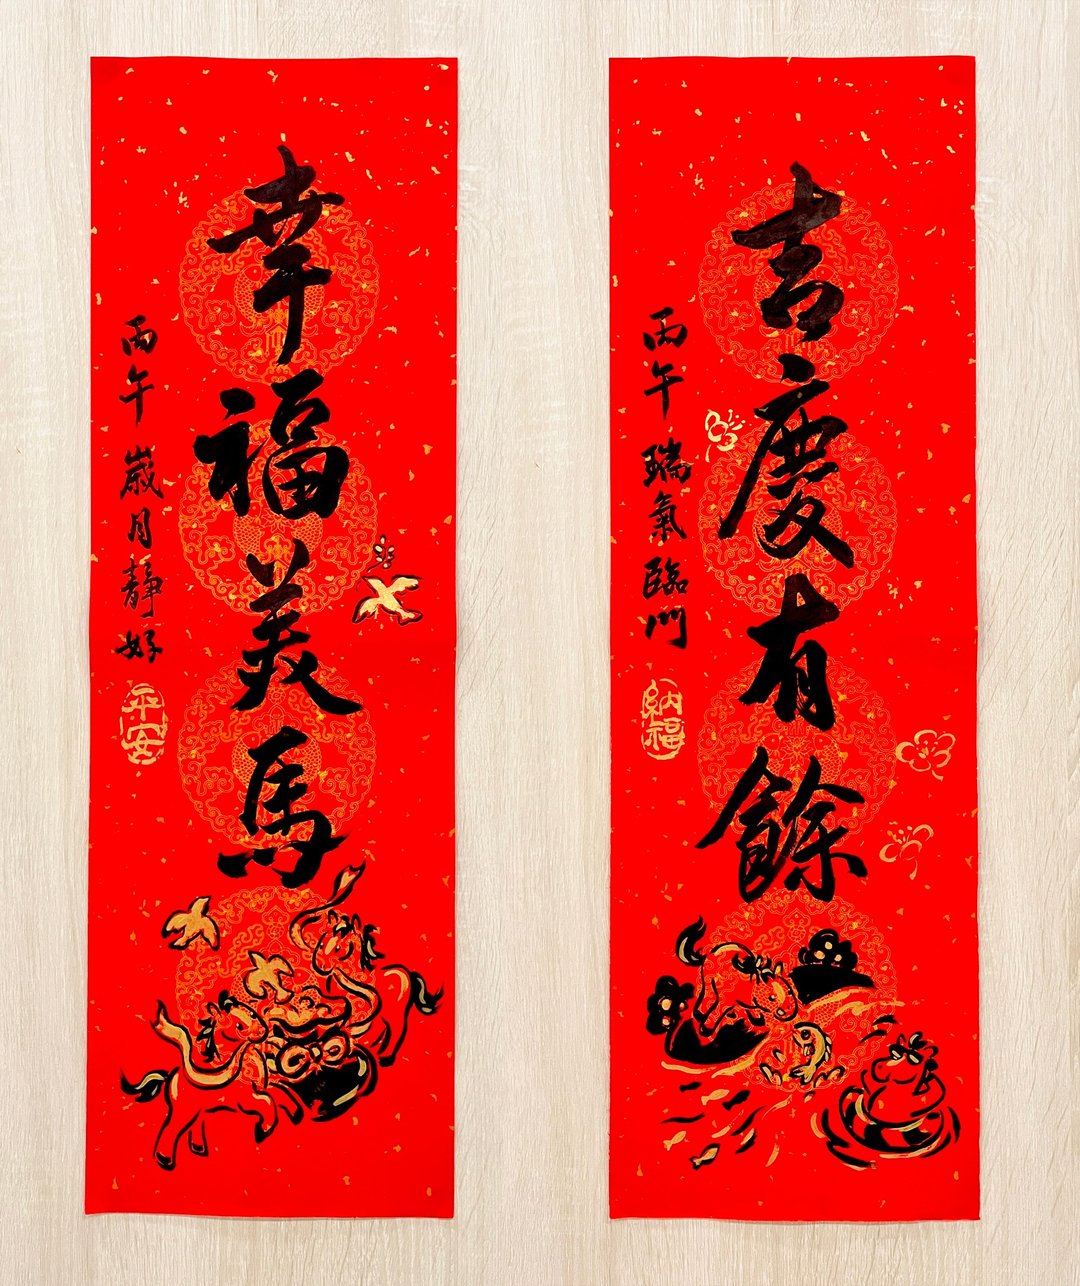 吉慶有餘
丙午 瑞氣臨門
納福
幸福美馬
丙午 歲月靜好
平安